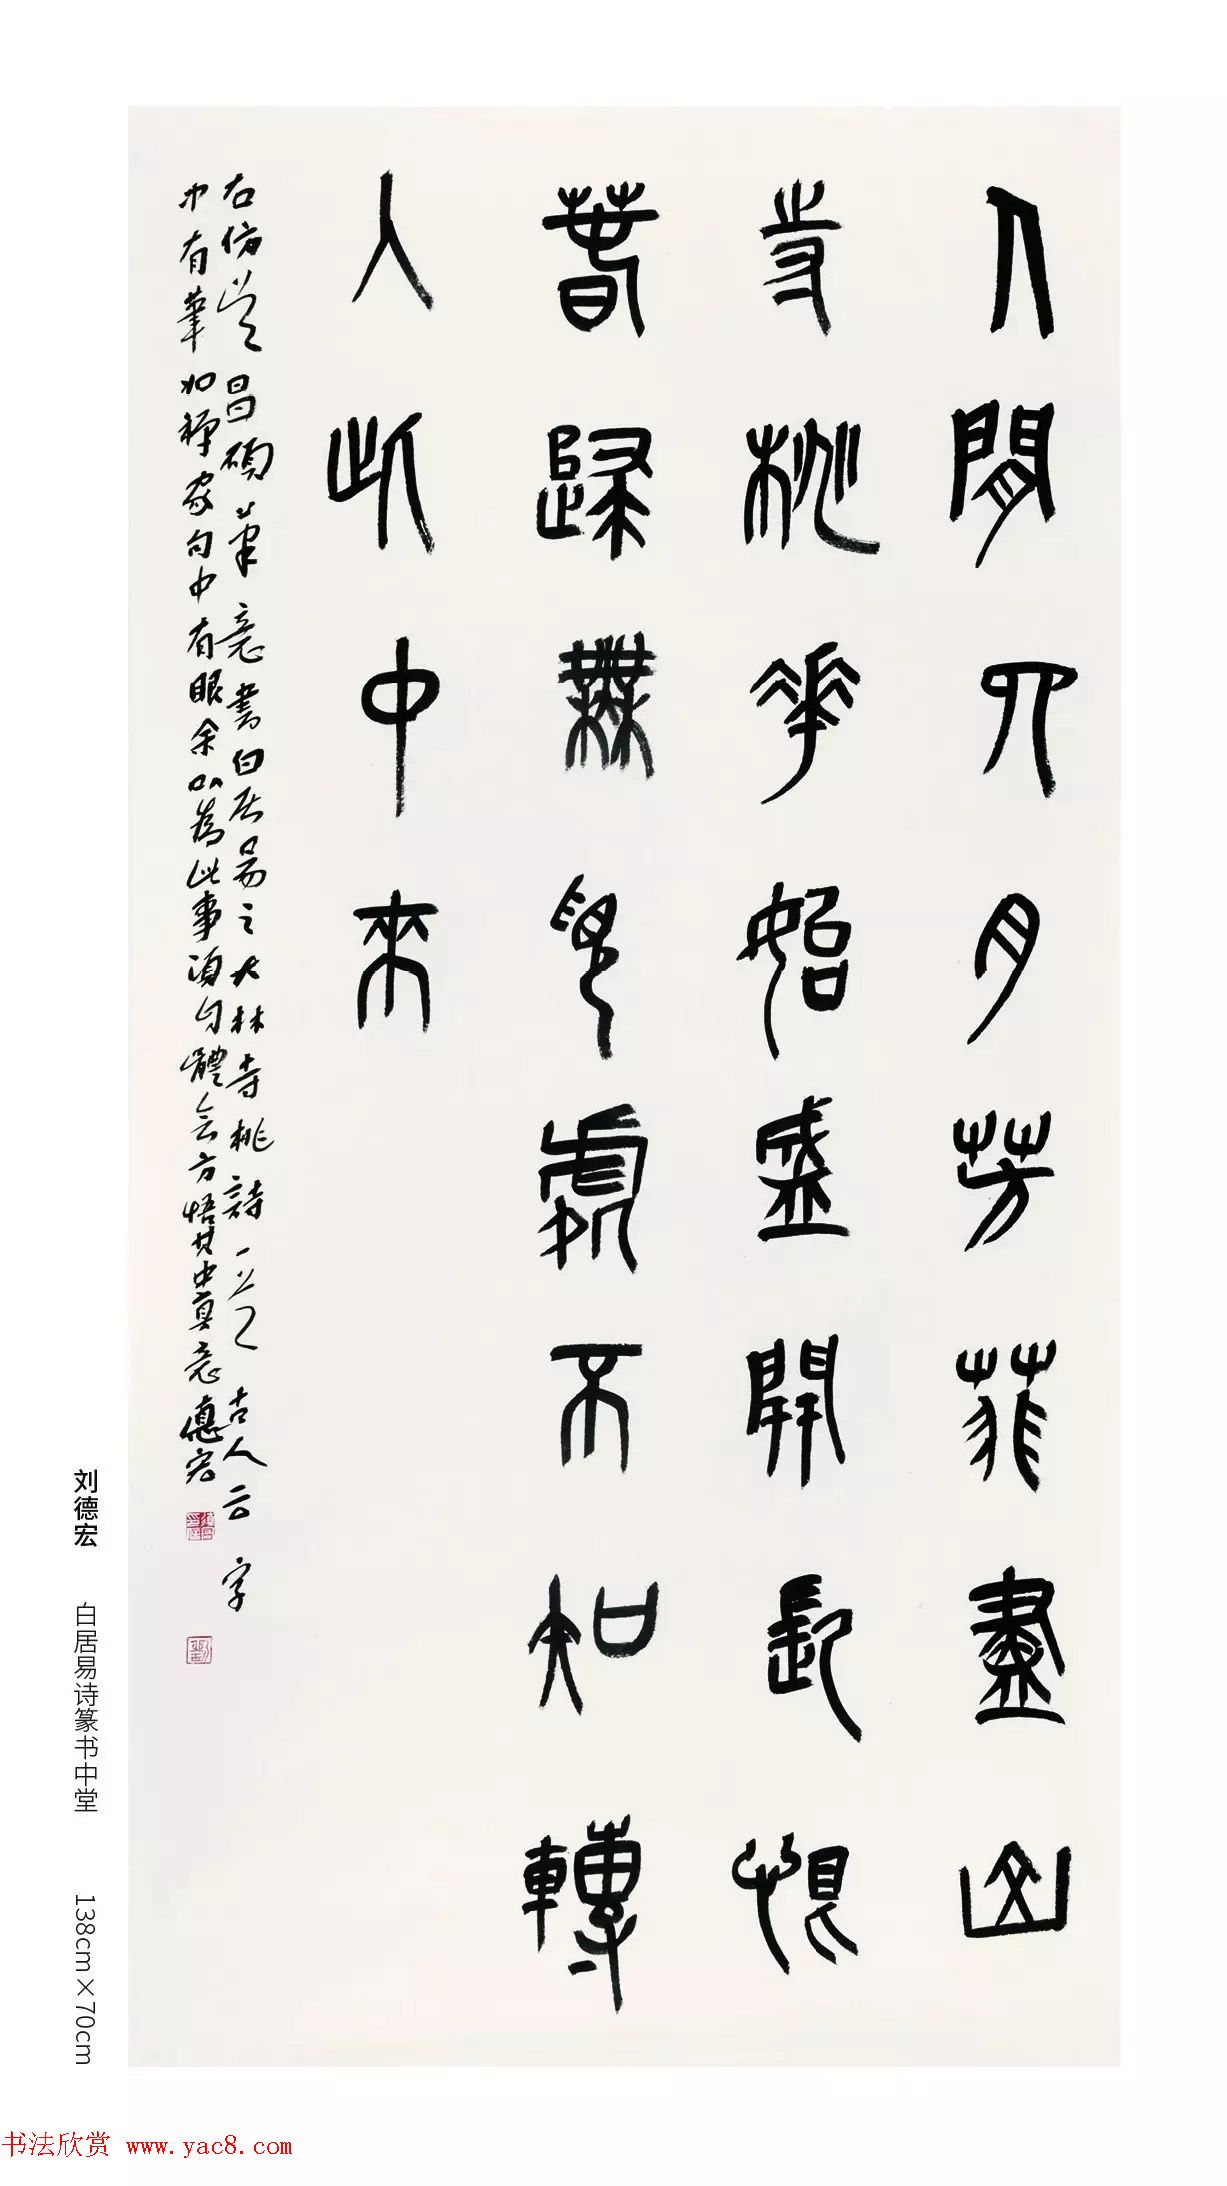 人間四月芳菲盡山
寺桃花始盛開長恨
春歸無覓處不知轉
入此中來
右仿吴昌碩筆意書白居易之大林寺桃詩一首 古人云 字
中有筆如禪家句中有眼余以為此事須自體會方悟其中真意 德宏
劉
刘德宏 白居易诗篆书中堂 138cm×70cm
书法欣赏 www.yac8.com